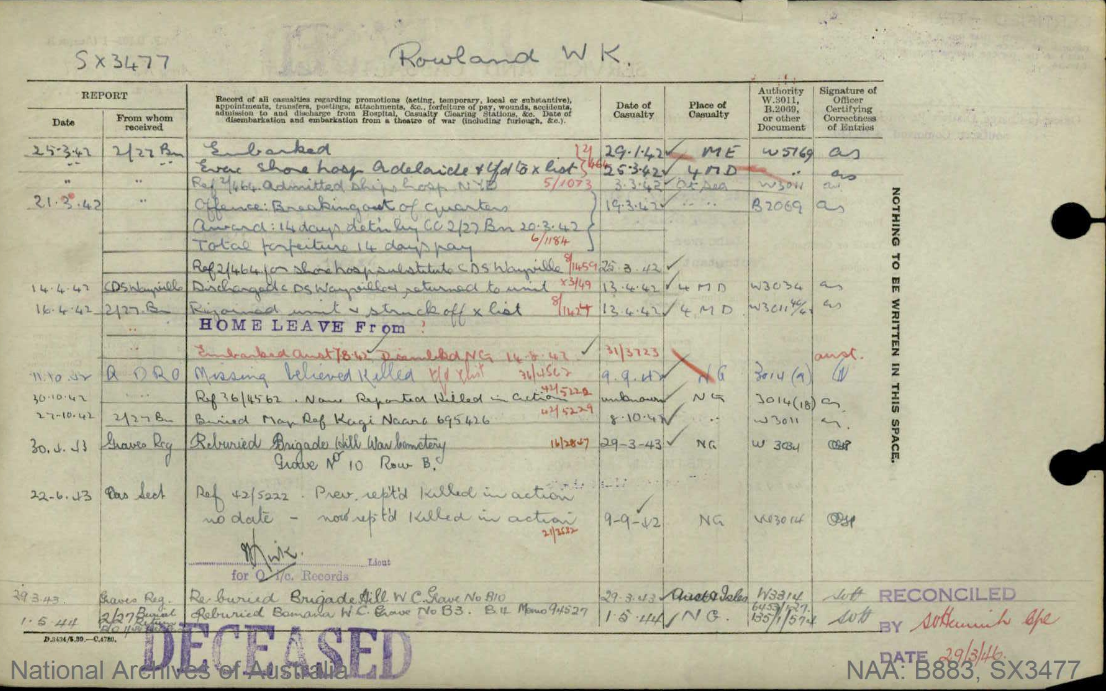 SX3477 Rowland W K.
REPORT
Date
From whom received
Record of all casualties regarding promotions (acting, temporary, local or substantive),
appointments, transfers, postings, attachments, &c., forfeiture of pay, wounds, accidents,
admission to and discharge from Hospital, Casualty Clearing Stations, &c. Date of
disembarkation and embarkation from a theatre of war (including furlough, &c.).
Date of Casualty
Place of Casualty
Authority W.3011, B.2069, or other Document
Signature of Officer Certifying Correctness of Entries
25.3.42 2/27 Bn Embarked 29.1.42 ME W5169 as
" " Evac Shore hosp Adelaide & tfd to x list 464 25.3.42 4 MD " as
" " Ref 2/464 admitted ships hosp NYD 5/1073 3.3.42 At Sea W3011 as
21.3.42 " Offence: Breaking out of quarters 19.3.42 " " B2069 as
Award: 14 days det'n by CO 2/27 Bn 20.3.42
Total forfeiture 14 days pay 6/1184
Ref 2/464 for shore hosp substitute CDS Wayville 8/1459 25.3.42
14.4.42 CDS Wayville Discharged CDS Wayville & returned to unit 13.4.42 4 MD W3034 as
16.4.42 2/27 Bn Rejoined unit & struck off x list 13.4.42 4 MD W3011 as
HOME LEAVE From ?
" Embarked Aust 7.8.42 Disembked NG 14.8.42 31/3723 aust.
11.10.42 A DRO Missing believed Killed 36/4562 9.9.42 NG 3014 (9)
30.10.42 " Ref 36/4562. Now Reported Killed in action 42/5222 unknown NG 3014(18)
27.10.42 2/27 Bn Buried Map Ref Kagi Naara 695426 42/5229 8.10.42 " W3011
30.4.43 Graves Reg Reburied Brigade Hill War Cemetery 16/2847 29-3-43 NG W 3034
Grave No 10 Row B.
22-6.43 Cas Sect Ref 42/5222. Prev. rept'd killed in action
no date - now rept'd killed in action 9-9-42 NG W3014
21/3682
Lieut
for O i/c. Records
29.3.43. Graves Reg. Re-buried Brigade Hill W C. Grave No B10 29.3.43 W3314
1.5.44 2/27 Reburied Bomana W.C. Grave No B3. B4 Memo 94527 1.5.44 NG. 135/1/574
D.3434/5.39.—C.4780.
DECEASED
RECONCILED
BY
DATE 29/3/46.
NOTHING TO BE WRITTEN IN THIS SPACE.
National Archives of Australia NAA: B883, SX3477